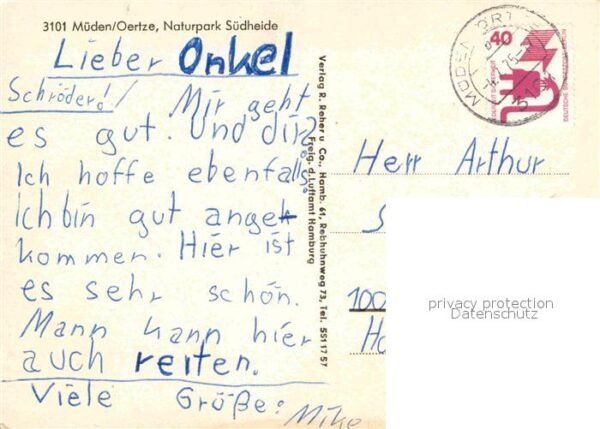 3101 Müden/Oertze, Naturpark Südheide
Lieber Onkel
Schröder!
Mir geht
es gut. Und dir?
Ich hoffe ebenfalls.
Ich bin gut angek
kommen. Hier ist
es sehr schön.
Mann kann hier
auch reiten.
Viele Größe:
Mike
Verlag R. Reher u. Co., Hamb. 61, Rebhuhnweg 73, Tel. 5511757
Freig. d. Luftamt Hamburg
40
Herr Arthur
S
100
privacy protection
Datenschutz